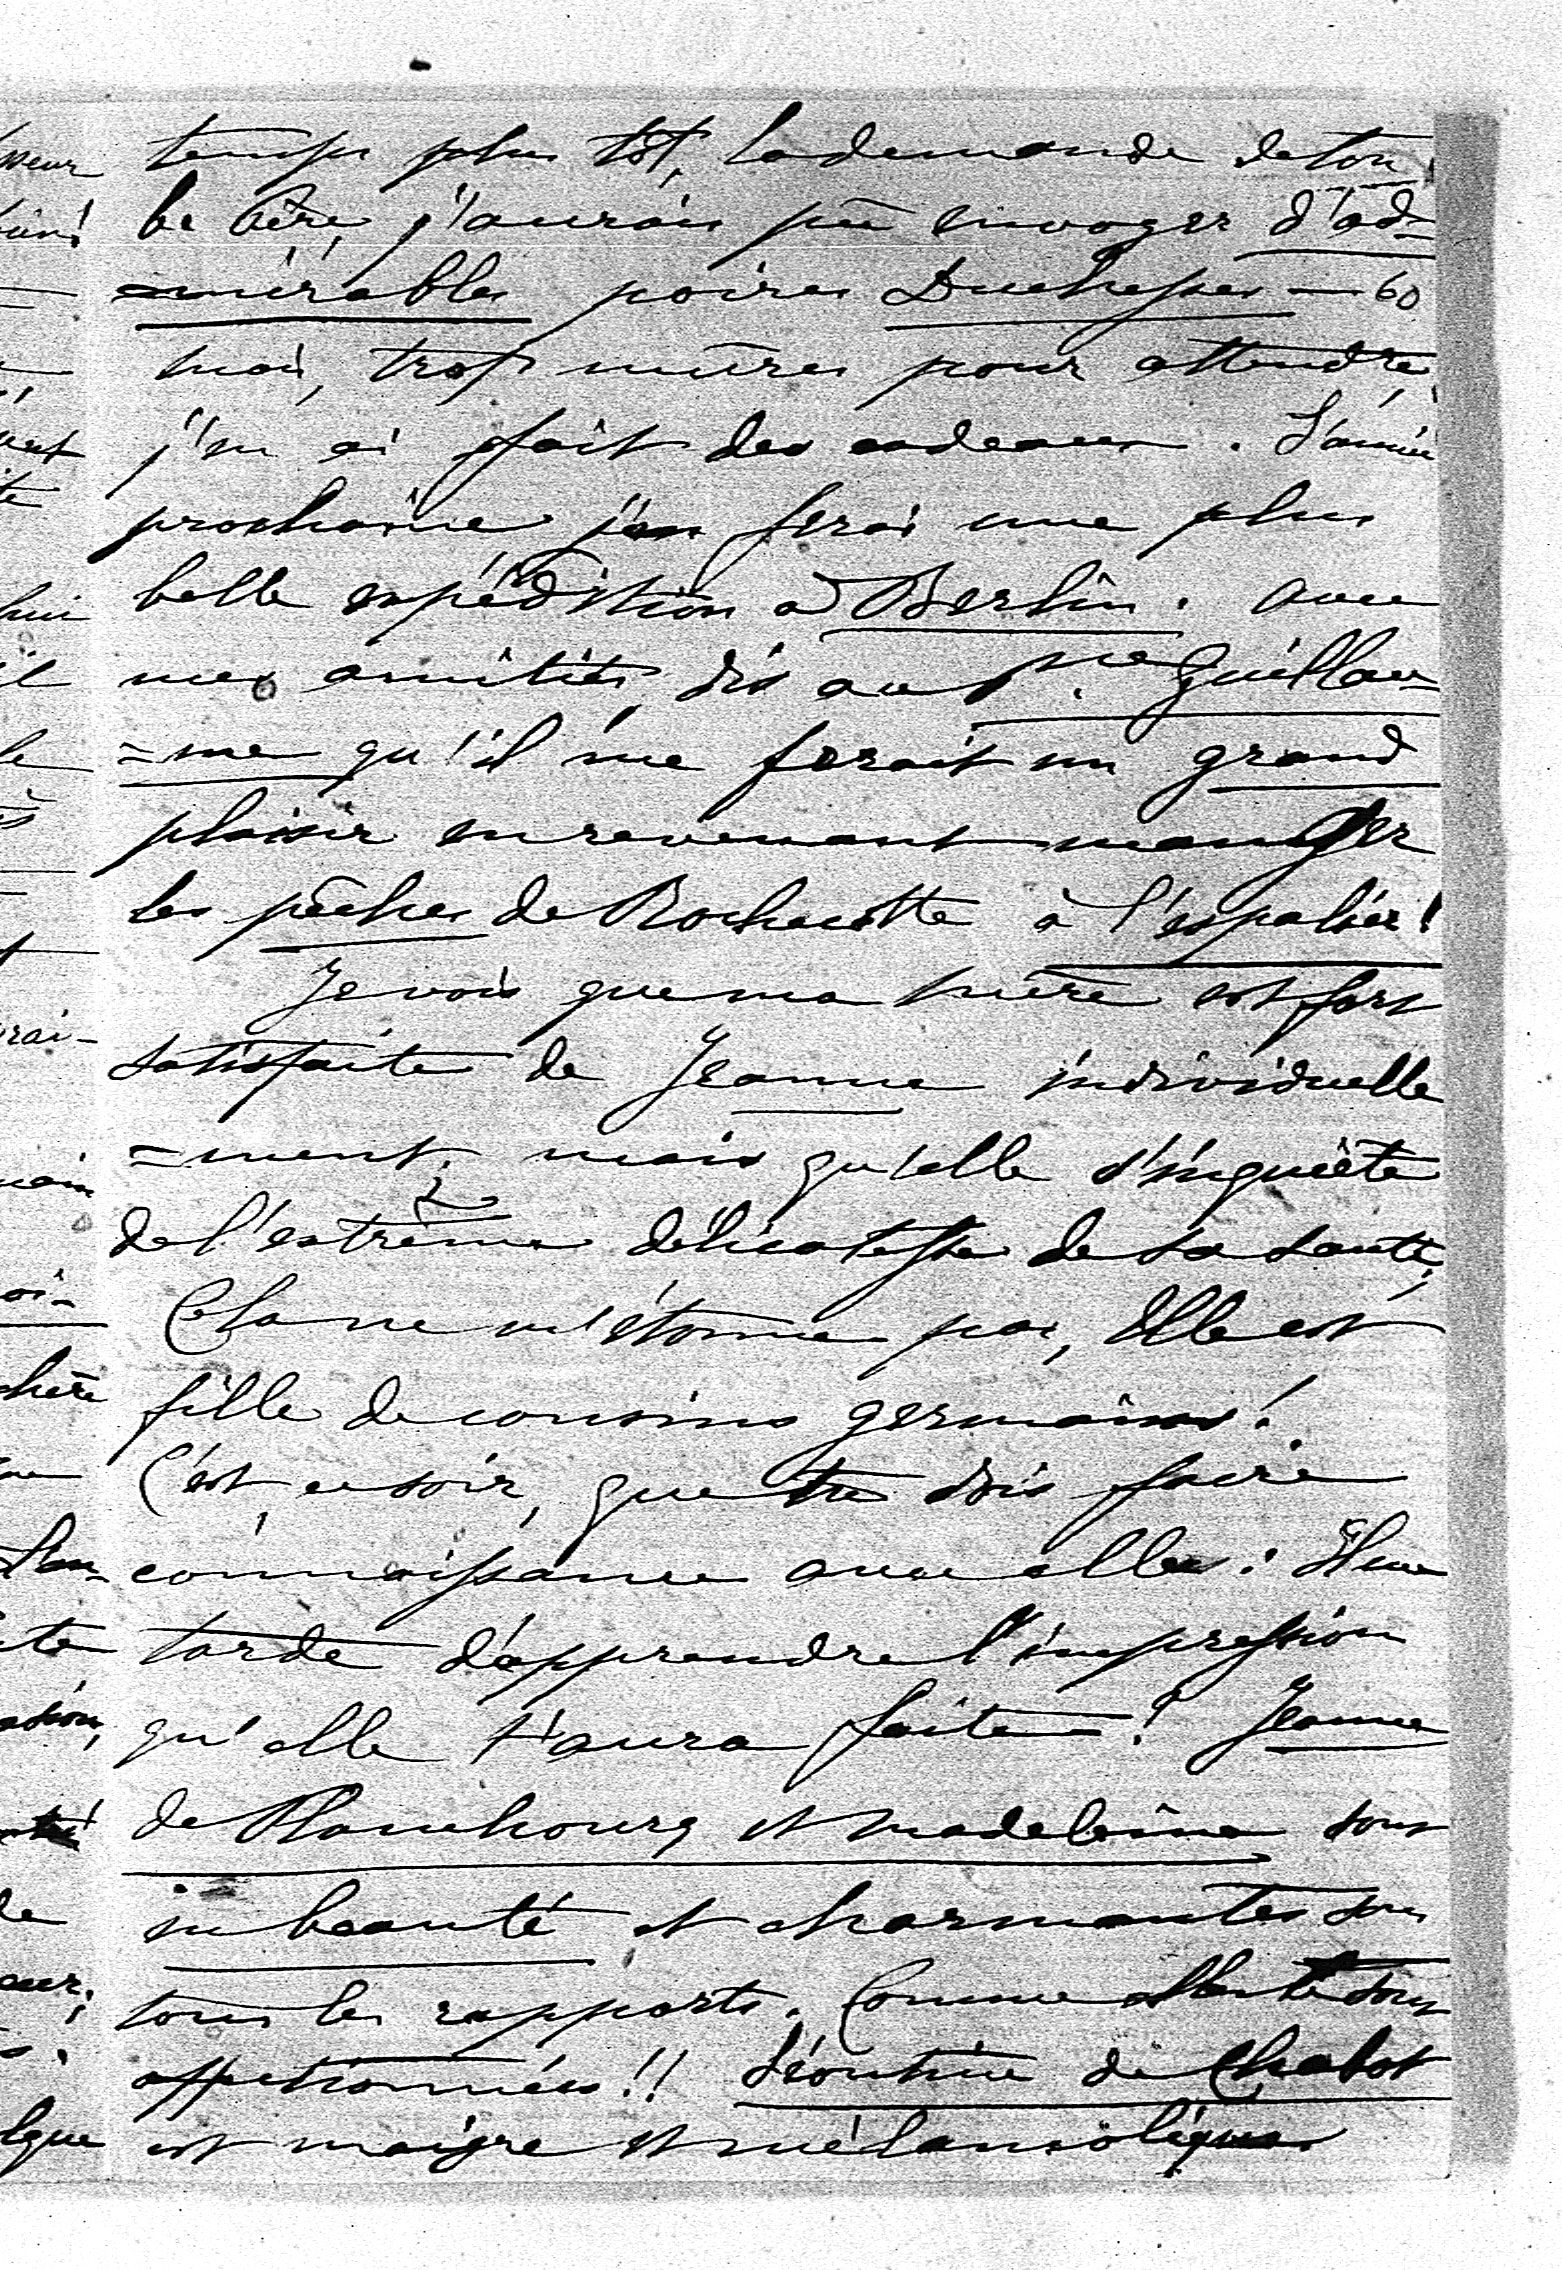 temps plus tôt, la demande de ton
be bère, j'aurais pû envoyer d'ad-
mirables poires Duchesses — 60
mais, trop mûres pour attendre,
j'en ai fait des cadeaux. L'année
prochaine j'en ferai une plus
belle expédition à Berlin. avec
mes amitiés, dis au Pce Guillau-
=me qu'il me ferait un grand
plaisir en revenant manger
les pêches de Rochecotte à l'espalier!
Je vois que ma mère est fort
satisfaite de Jeanne individuelle
=ment, mais qu'elle s'inquiète
de l'extrême délicatesse de sa santé;
Cela ne m'étonne pas, Elle est
fille de cousins germains!
C'est ce soir, que tu dois faire
connaissance avec elle: Il me
tarde d'apprendre l'impression
qu'elle t'aura faite! Jeanne
de et Madeleine sont
en beauté et charmantes sous
tous les rapports. Comme elles te sont
affectionnées!! Léontine de Chabot
est maigre et mélancolique